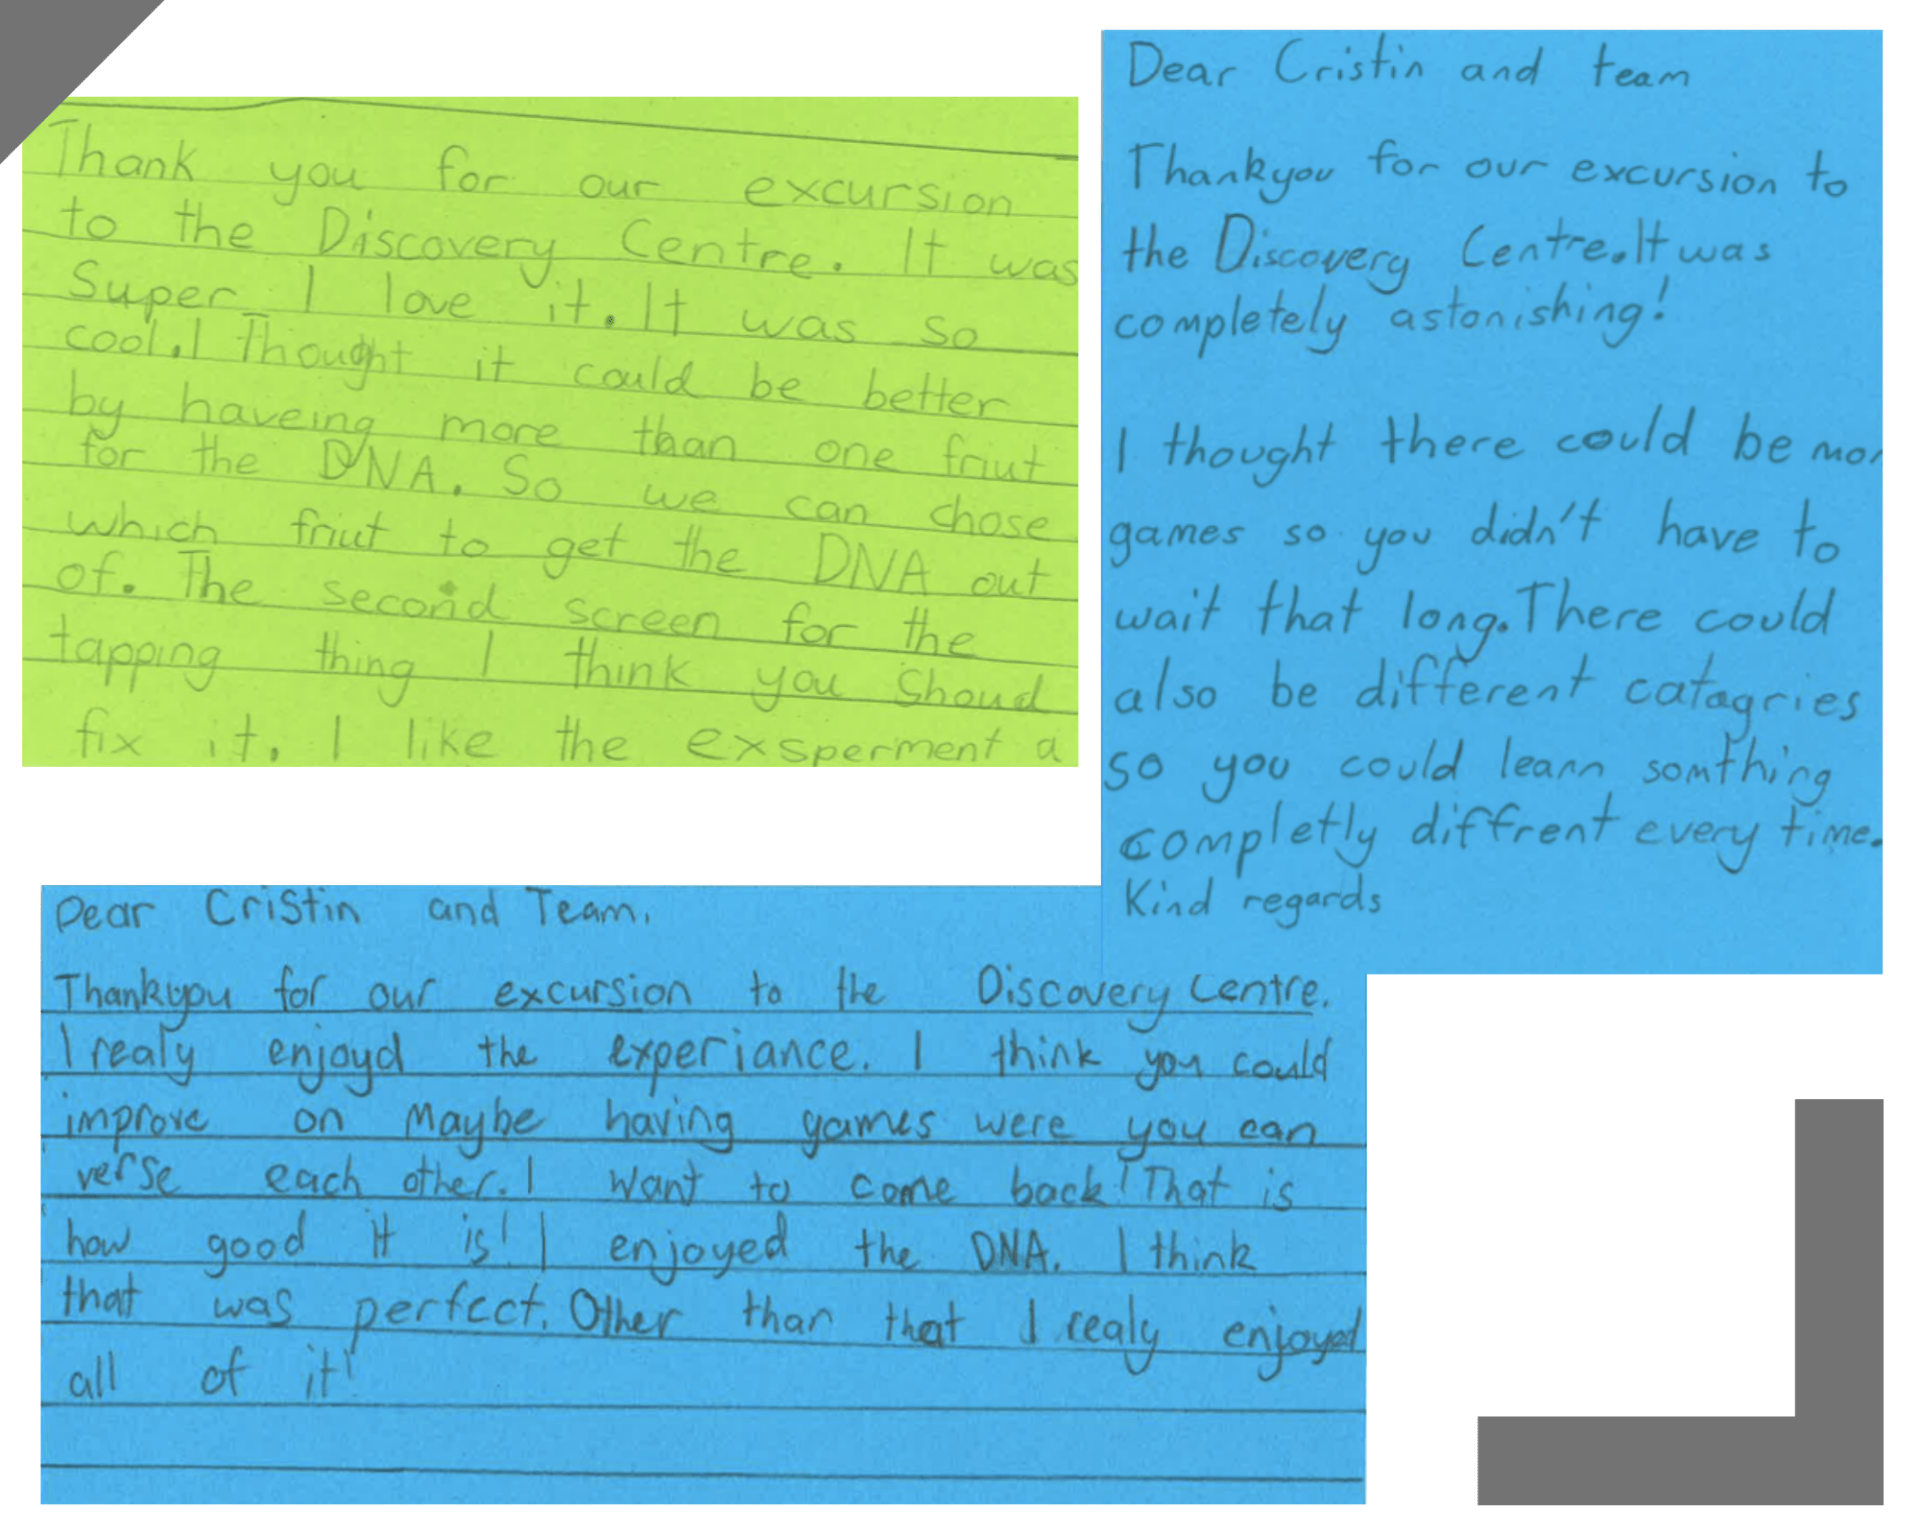 Thank you for our excursion
to the Discovery Centre. It was
Super I love it. It was so
cool. I Thought it could be better
by haveing more than one friut
for the DNA. So we can chose
which friut to get the DNA out
of. The second screen for the
tapping thing I think you shoud
fix it. I like the exsperment a
Dear Cristin and team
Thankyou for our excursion to
the Discovery Centre. It was
completely astonishing!
I thought there could be mor
games so you didn't have to
wait that long. There could
also be different catagries
so you could learn somthing
completly diffrent every time.
Kind regards
Dear Cristin and Team,
Thankyou for our excursion to the Discovery Centre.
I realy enjoyd the experiance. I think you could
improve on Maybe having games were you can
verse each other. I want to come back! That is
how good it is! I enjoyed the DNA. I think
that was perfect. Other than that I realy enjoyed
all of it!